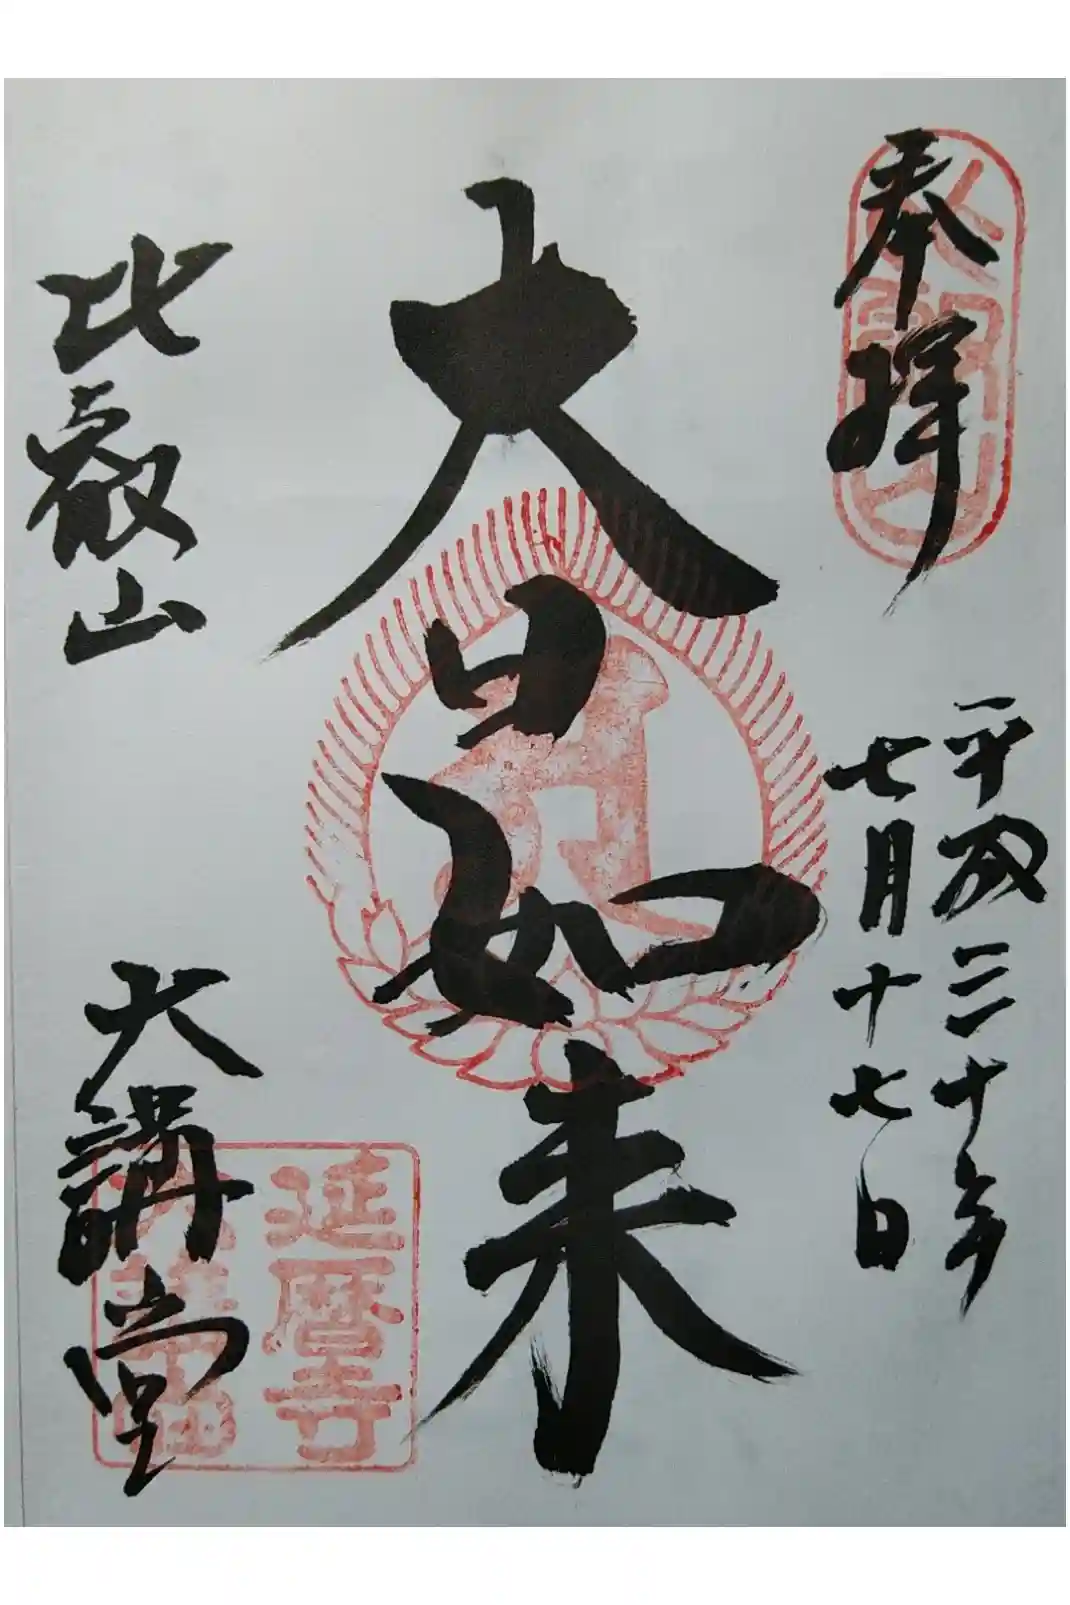 奉拝
平成三十年
七月十七日
大日如来
比叡山
大講堂
延暦寺